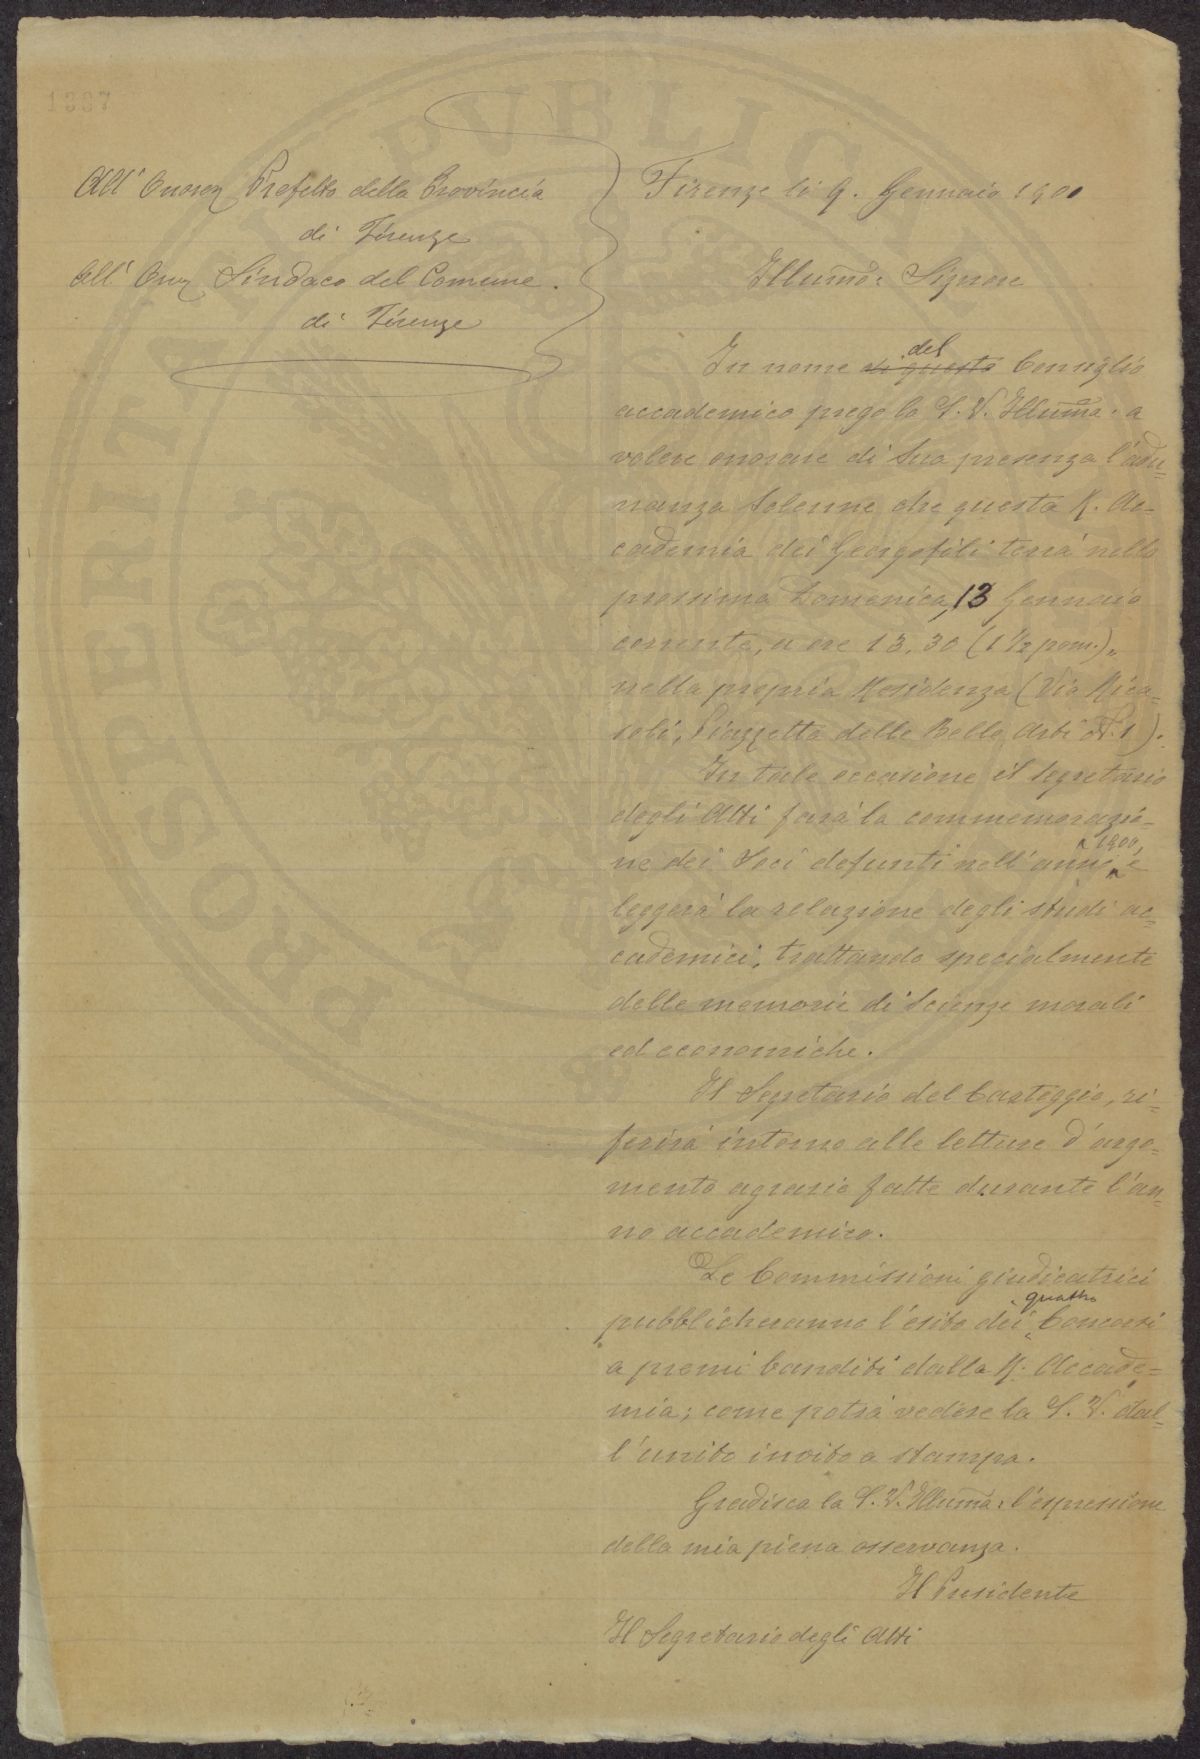 1307
All' Onorev Prefetto della Provincia
di Firenze
All' Onor Sindaco del Comune.
di Firenze
Firenze li 9. Gennaio 1900
Illumo: Signore
In nome di questo del Consiglio
accademico prego la S. V. Illuma: a
volere onorare di Sua presenza l'adu=
nanza Solenne che questa R. Ac-
cademia dei Georgofili terrà nella
prossima Domenica, 13 Gennaio
corrente, a ore 13.30 (1 ½ pom.),
nella propria Residenza (Via Rica-
soli, Piazzetta delle Belle Arti N. 1).
In tale occasione il Segretario
degli Atti farà la commemorazio-
ne dei Soci defunti nell'anno 1900, e
leggerà la relazione degli studi ac-
cademici, trattando specialmente
delle memorie di Scienze morali
ed economiche.
Il Segretario del Carteggio, ri-
ferirà intorno alle letture d'argo=
mento agrario fatte durante l'an-
no accademico.
Le Commissioni giudicatrici
pubblicheranno l'esito dei quattro Concorsi
a premi banditi dalla R. Accade=
mia; come potrà vedere la S. V. dal-
l'unito invito a stampa.
Gradisca la S. V. Illuma: l'espressione
della mia piena osservanza.
Il Presidente
Il Segretario degli Atti
PROSPERITATI PUBLICAE